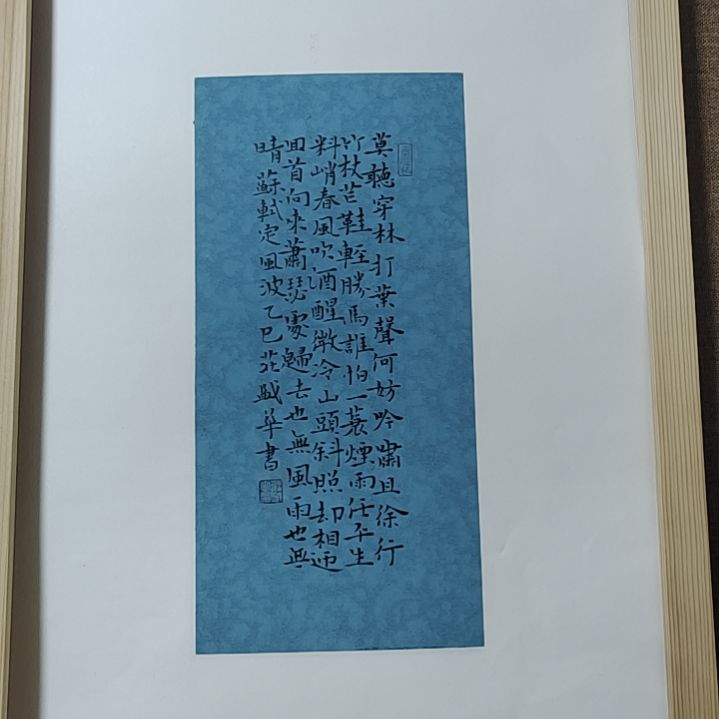 莫聽穿林打葉聲何妨吟嘯且徐行
竹杖芒鞋輕勝馬誰怕一蓑煙雨任平生
料峭春風吹酒醒微冷山頭斜照却相迎
回首向來蕭瑟處歸去也無風雨也無
晴蘇軾定風波乙巳花 華書